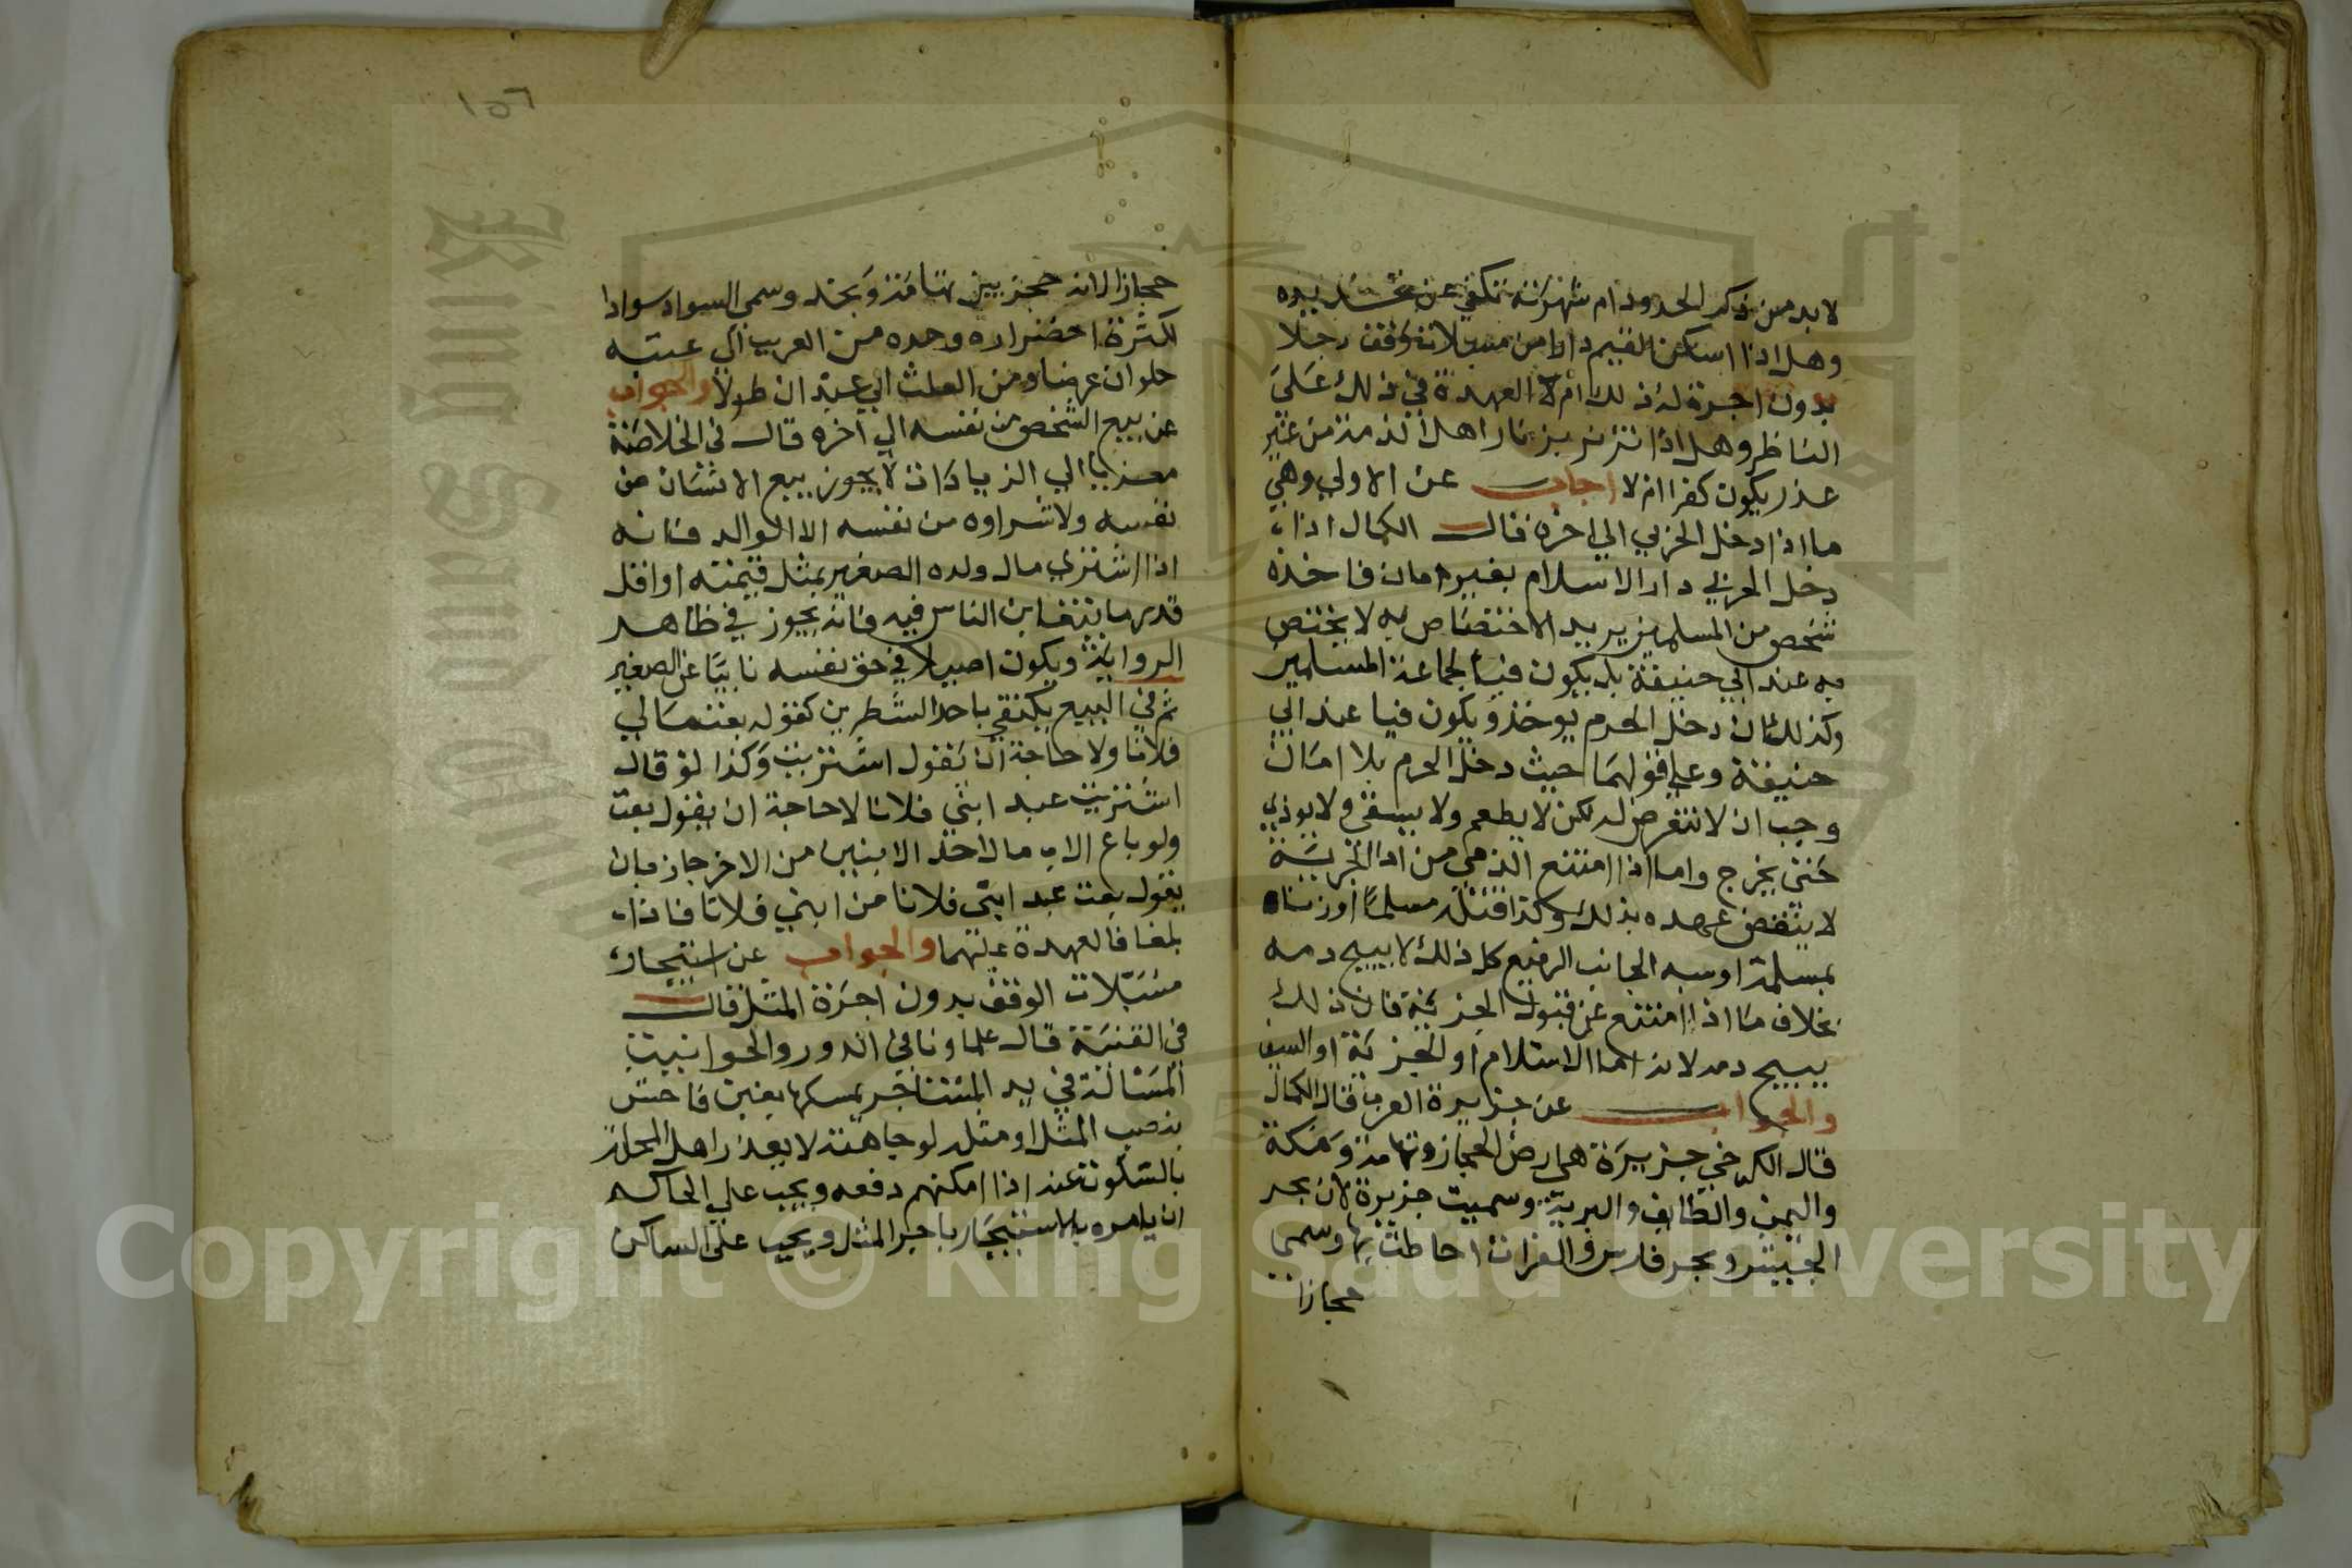 لابد من ذكر الحدود ام شهرته تكفي عن تحديده
وهل اذا اسكن القيم دارا من مسبلات الوقف رجلا
بدون اجرة له ذلك ام لا العهدة في ذلك على
الناظر وهل اذا تزنر بزنار اهل الذمة من غير
عذر يكون كفرا ام لا اجاب عن الاولي وهي
ما اذا دخل الحربي الي اخره قال الكمال اذا
دخل الحربي دار الاسلام بغير امان فاخذه
شخص من المسلمين يريد الاختصاص به لا يختص
به عند ابي حنيفة بل يكون فيا لجماعة المسلمين
وكذلك ان دخل الحرم يوخذ ويكون فيا عند ابي
حنيفة وعلي قولهما حيث دخل الحرم بلا امان
وجب ان لا نتعرض له لكن لا يطعم ولا يسقي ولا يوذي
حتي يخرج واما اذا امتنع الذمي من اداء الجزية
لا ينتقض عهده بذلك وكذا قتله مسلما او زناه
بمسلمة او سبه الجانب الرفيع كل ذلك لا يبيح دمه
بخلاف ما اذا امتنع عن قبول الجزية فان ذلك
يبيح دمه لانه اما الاسلام او الجزية او السيف
والجواب عن جزيرة العرب قال الكمال
قال الكرخي جزيرة هي ارض الحجاز وتهامة ومكة
واليمن والطايف والبرية وسميت جزيرة لان بحر
الحبش وبحر فارس والفرات احاطت بها وسمي
حجازا
١٥٦
حجازا لانه حجز بين تهامة ونجد وسمي السواد سوادا
لكثرة اخضراره وحده من العرب الي عقبه
حلوان عرضا ومن العلث الي عبدان طولا والجواب
عن بيع الشخص من نفسه الي اخره قال في الخلاصة
معزيا الي الزيادات لا يجوز بيع الانسان من
نفسه ولا شراوه من نفسه الا الوالد فانه
اذا اشتري مال ولده الصغير بمثل قيمته او اقل
قدر ما يتغابن الناس فيه فانه يجوز في ظاهر
الرواية ويكون اصيلا في حق نفسه نايبا عن الصغير
ثم في البيع يكتفي باحد الشطرين كقوله بعت مالي
فلانا ولا حاجة ان يقول اشتريت وكذا لو قال
اشتريت عبد ابني فلانا لا حاجة ان يقول بعت
ولو باع الاب مال احد الابنين من الاخر جاز بان
يقول بعت عبد ابني فلانا من ابني فلانا فاذا
بلغا فالعهدة عليهما والجواب عن استيجار
مسبلات الوقف بدون اجرة المثل قال
في القنية قال علماونا في الدور والحوانيت
المسالة في يد المستاجر يمسكها بغبن فاحش
بنصف المثل او مثله لوجاهته لا يعذر اهل المحلة
بالسكوت عنه اذا امكنهم دفعه ويجب علي الحاكم
ان يامره بالاستيجار باجر المثل ويجب على الساكن
Copyright © King Saud University
King Saud University